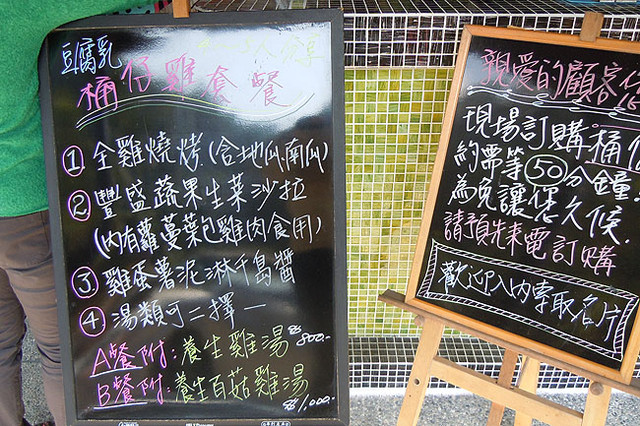 豆腐乳
桶仔雞套餐
① 全雞燒烤(含地瓜.南瓜)
② 豐盛蔬果生菜沙拉
(內有蘿蔓葉包雞肉食用)
③ 雞蛋薯泥淋千島醬
④ 湯類可二擇一
A餐附:養生雞湯 800.-
B餐附:養生百菇雞湯 1,000.-
親愛的顧客
現場訂購桶
約需等50分鐘.
為免讓您久候.
請預先來電訂購
歡迎入內索取名片